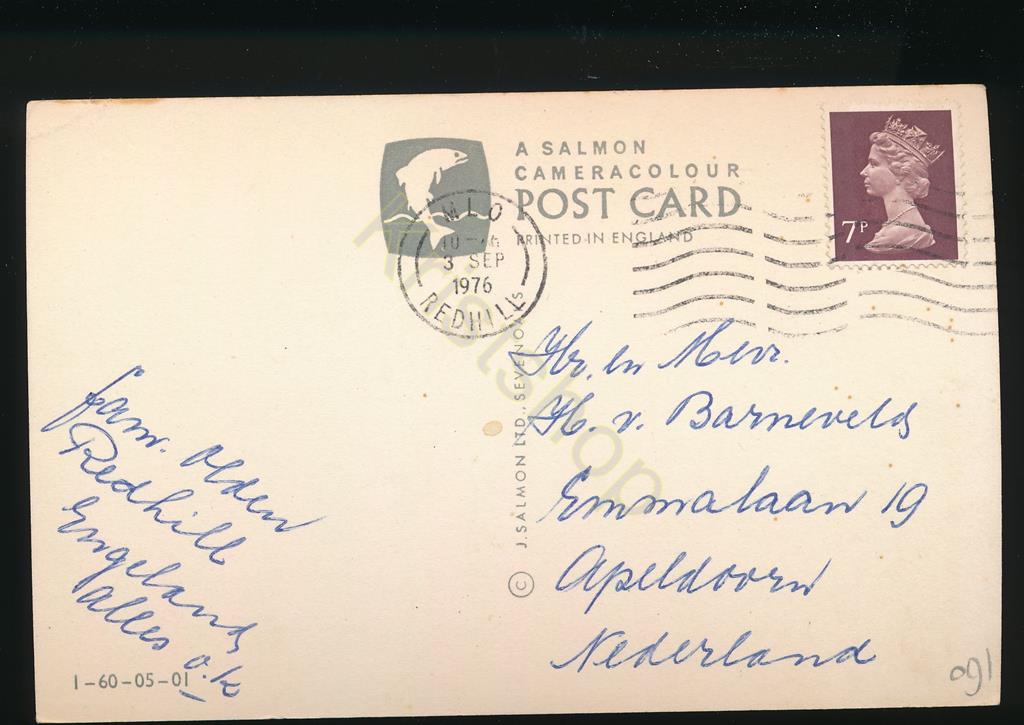 A SALMON
CAMERACOLOUR
POST CARD
PRINTED IN ENGLAND
7P
MLO
3 SEP
1976
REDHILL
Hr. en Mevr.
H. v. Barneveld
Emmalaan 19
Apeldoorn
Nederland
fam. Olden
Redhill
Engeland
alles o.k
© J. SALMON LTD., SEVENOAKS
1-60-05-01
Kristshop